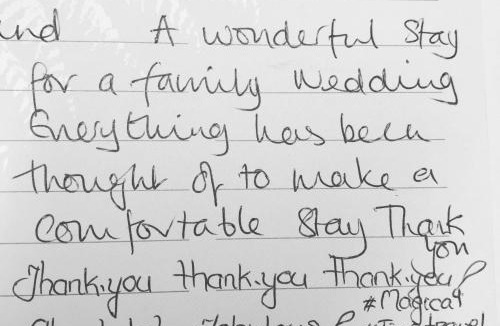 A wonderful Stay
for a family Wedding
Everything has been
thought of to make a
comfortable Stay Thank
you
Thank.you thank.you Thank.you!